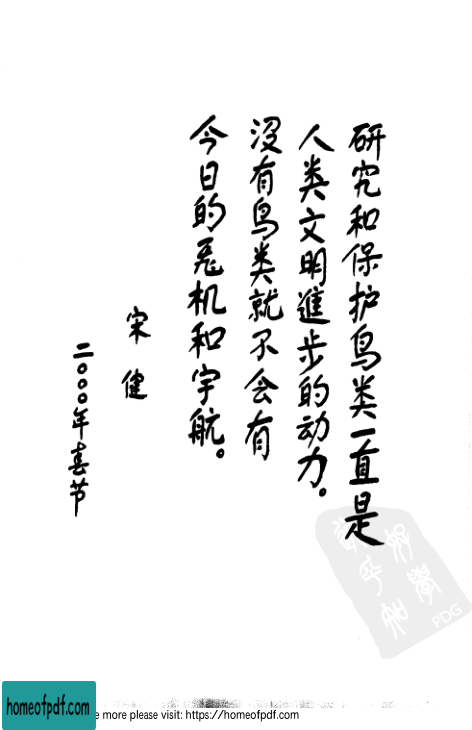 研究和保护鸟类一直是
人类文明進步的动力。
没有鸟类就不会有
今日的飞机和宇航。
宋健
二〇〇〇年春节
PDG
homeofpdf.com
e more please visit: https://homeofpdf.com